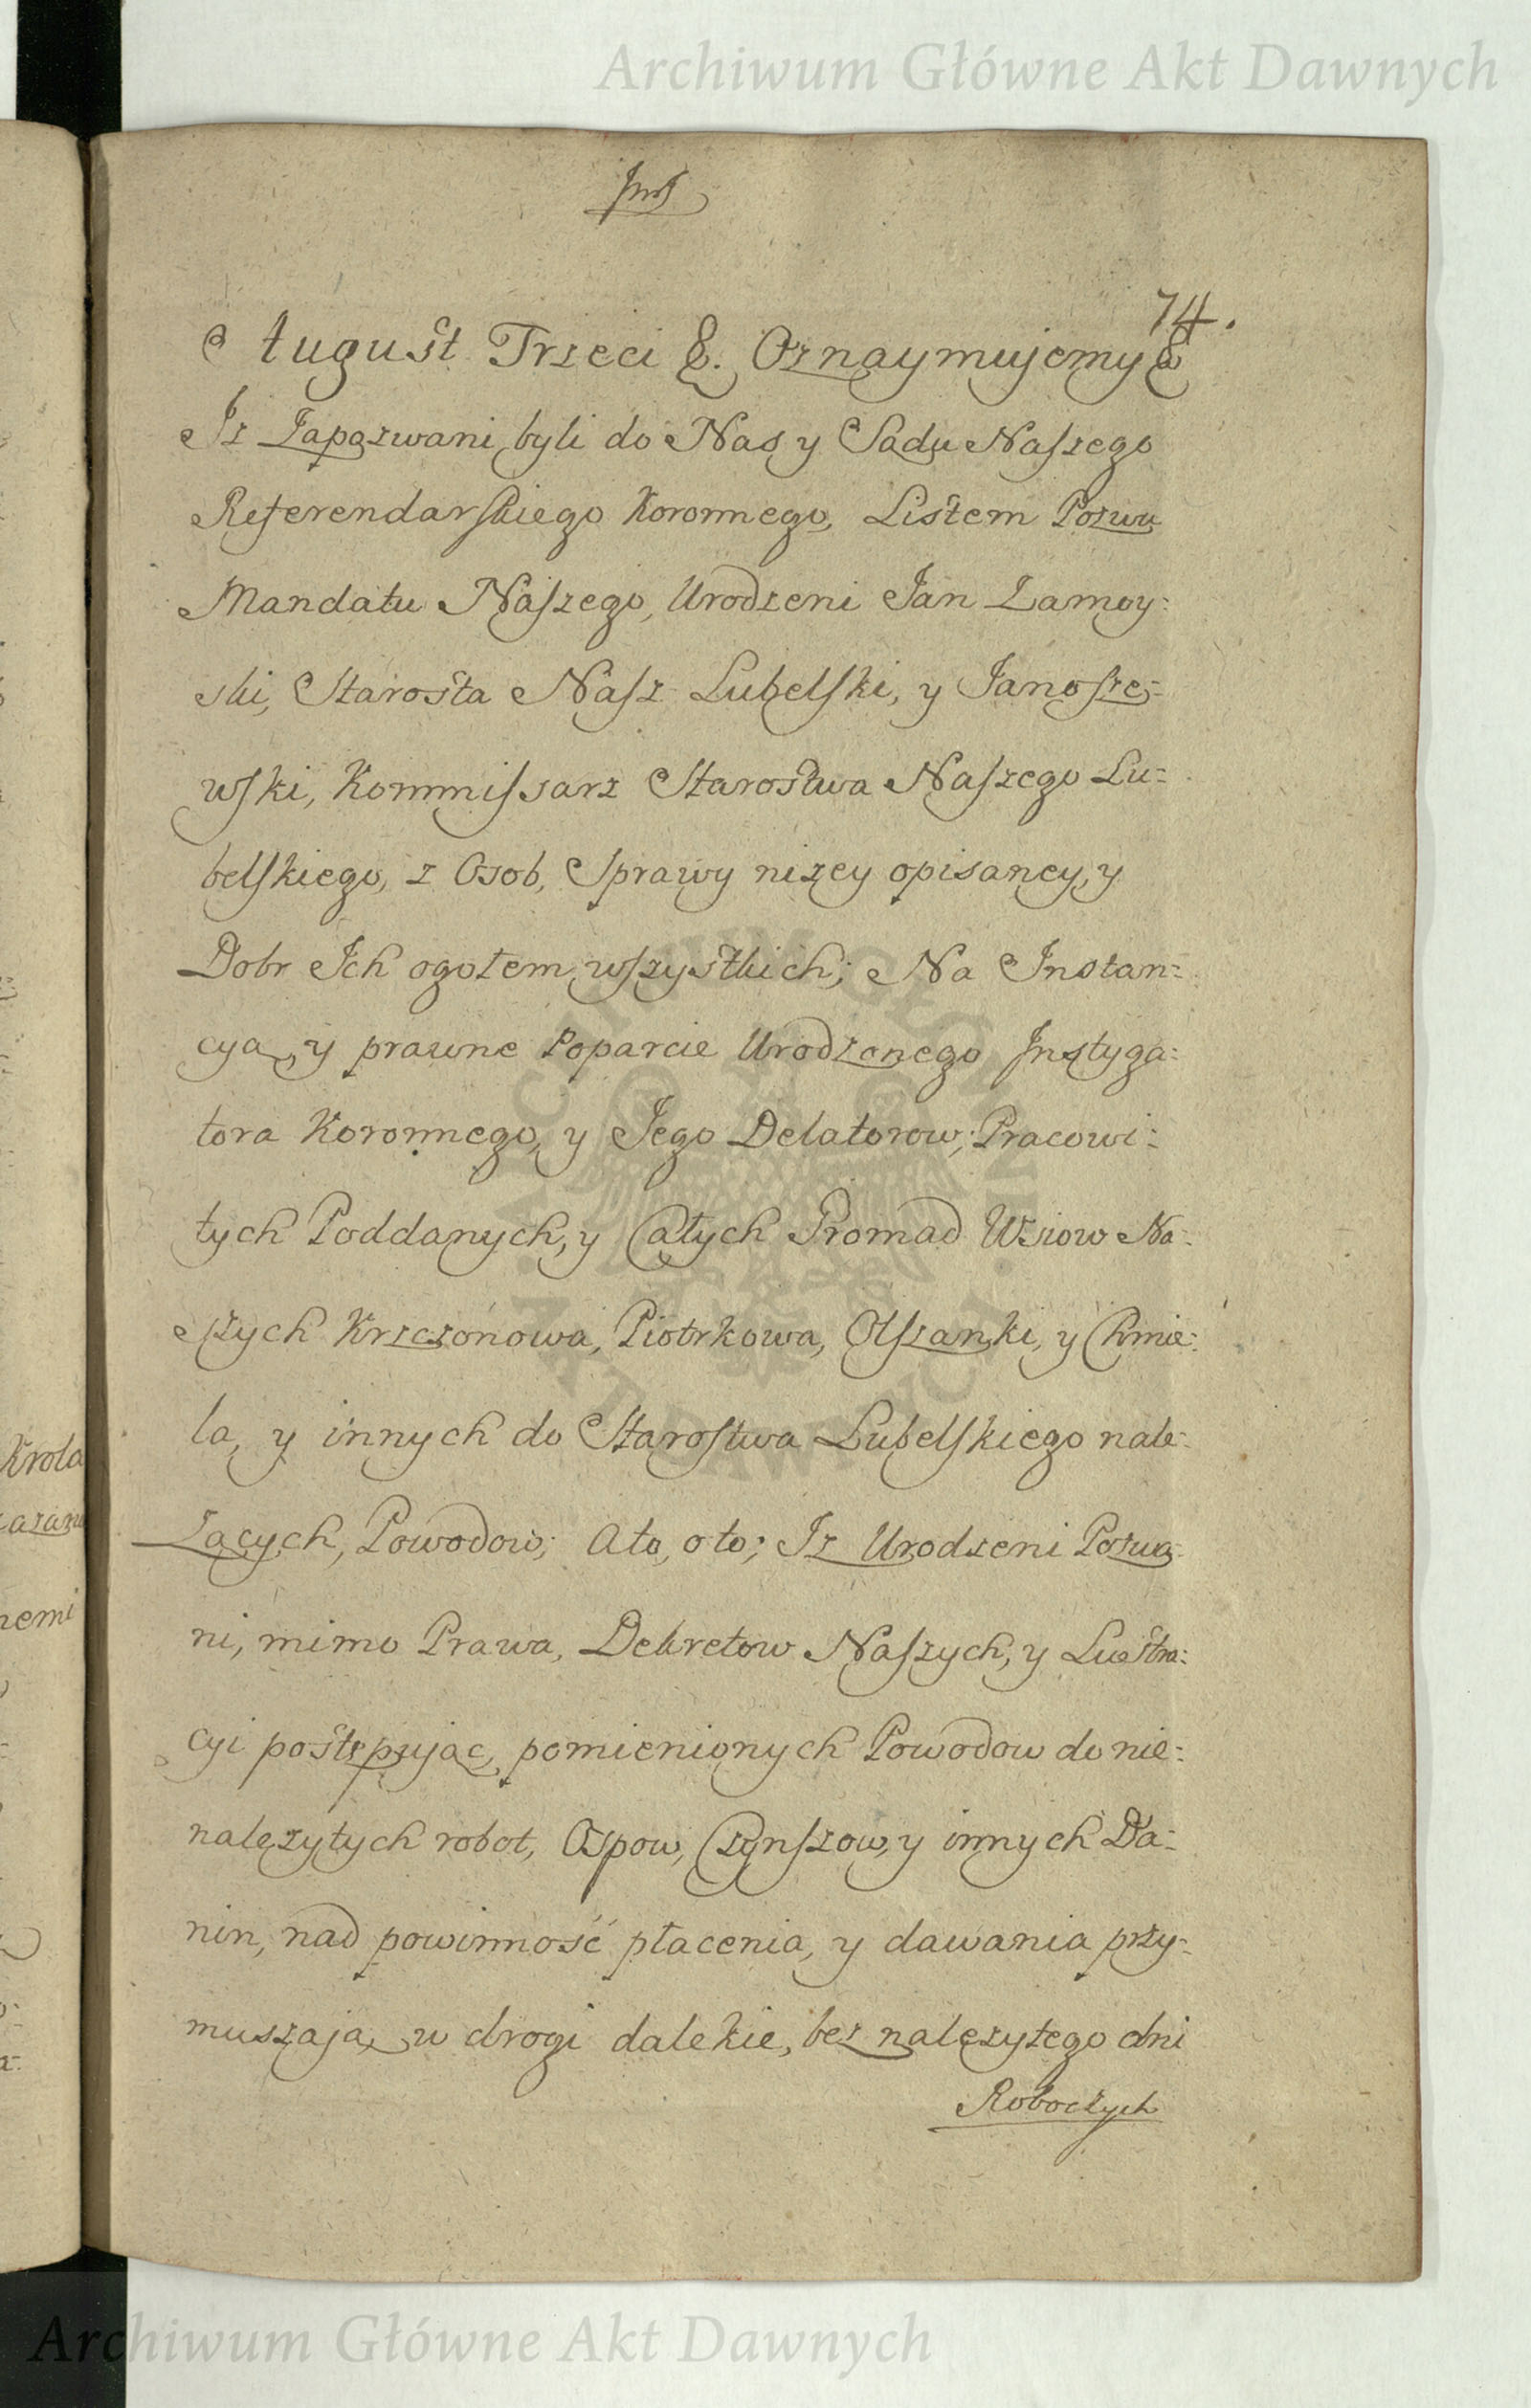 Archiwum Główne Akt Dawnych
74.
August Trzeci &. Oznaymujemy &
Iz Zapozwani byli do Nas y Sądu Naszego
Referendarskiego Koronnego, Listem Pozwu
Mandatu Naszego, Urodzeni Jan Zamoy:
ski, Starosta Nasz Lubelski, y Janosze:
wski, Kommissarz Starostwa Naszego Lu:
belskiego, z Osob, Sprawy nizey opisaney, y
Dobr Ich ogołem wszystkich; Na Instan:
cyą, y prawne Poparcie Urodzonego Instyga:
tora Koronnego, y Jego Delatorow; Pracowi:
tych Poddanych, y Całych Gromad Wsiow Na:
szych Krzczonowa, Piotrkowa, Olszanki, y Chmie:
la, y innych do Starostwa Lubelskiego nale:
zących, Powodow; Ato, oto; Iz Urodzeni Pozwa:
ni, mimo Prawa, Dekretow Naszych, y Lustra:
cyi postępując, pomienionych Powodow do nie:
nalezytych robot, Ospow, Czynszow, y innych Da:
nin, nad powinność płacenia, y dawania przy:
muszają, w drogi dalekie, bez nalezytego dni
Roboczych
Krola
nemi
ARCHIWUM GŁÓWNE
AKT DAWNYCH
Archiwum Główne Akt Dawnych